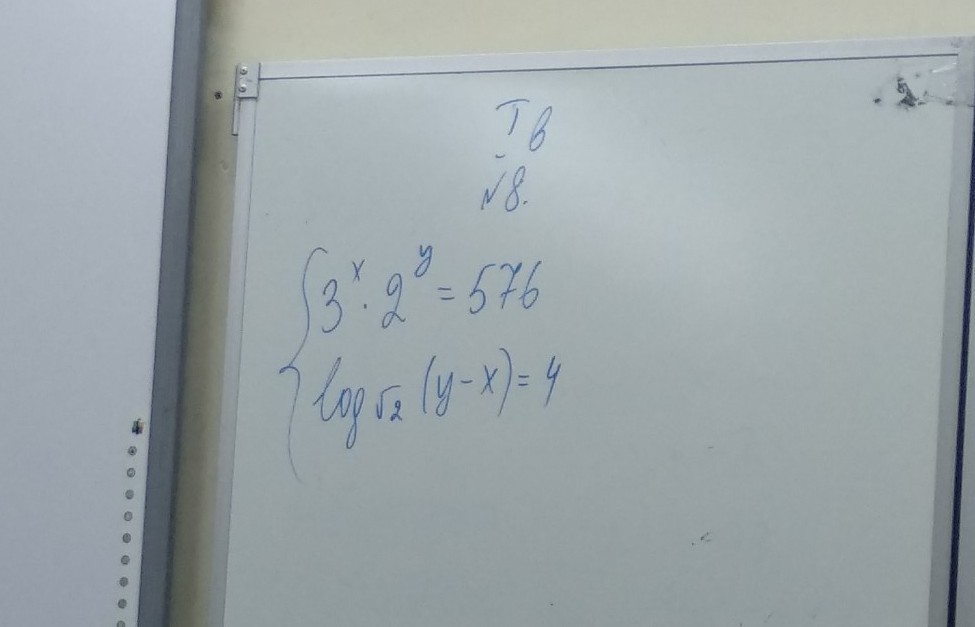 I в
№8.
3^x · 2^y = 576
log√2 (y-x) = 4